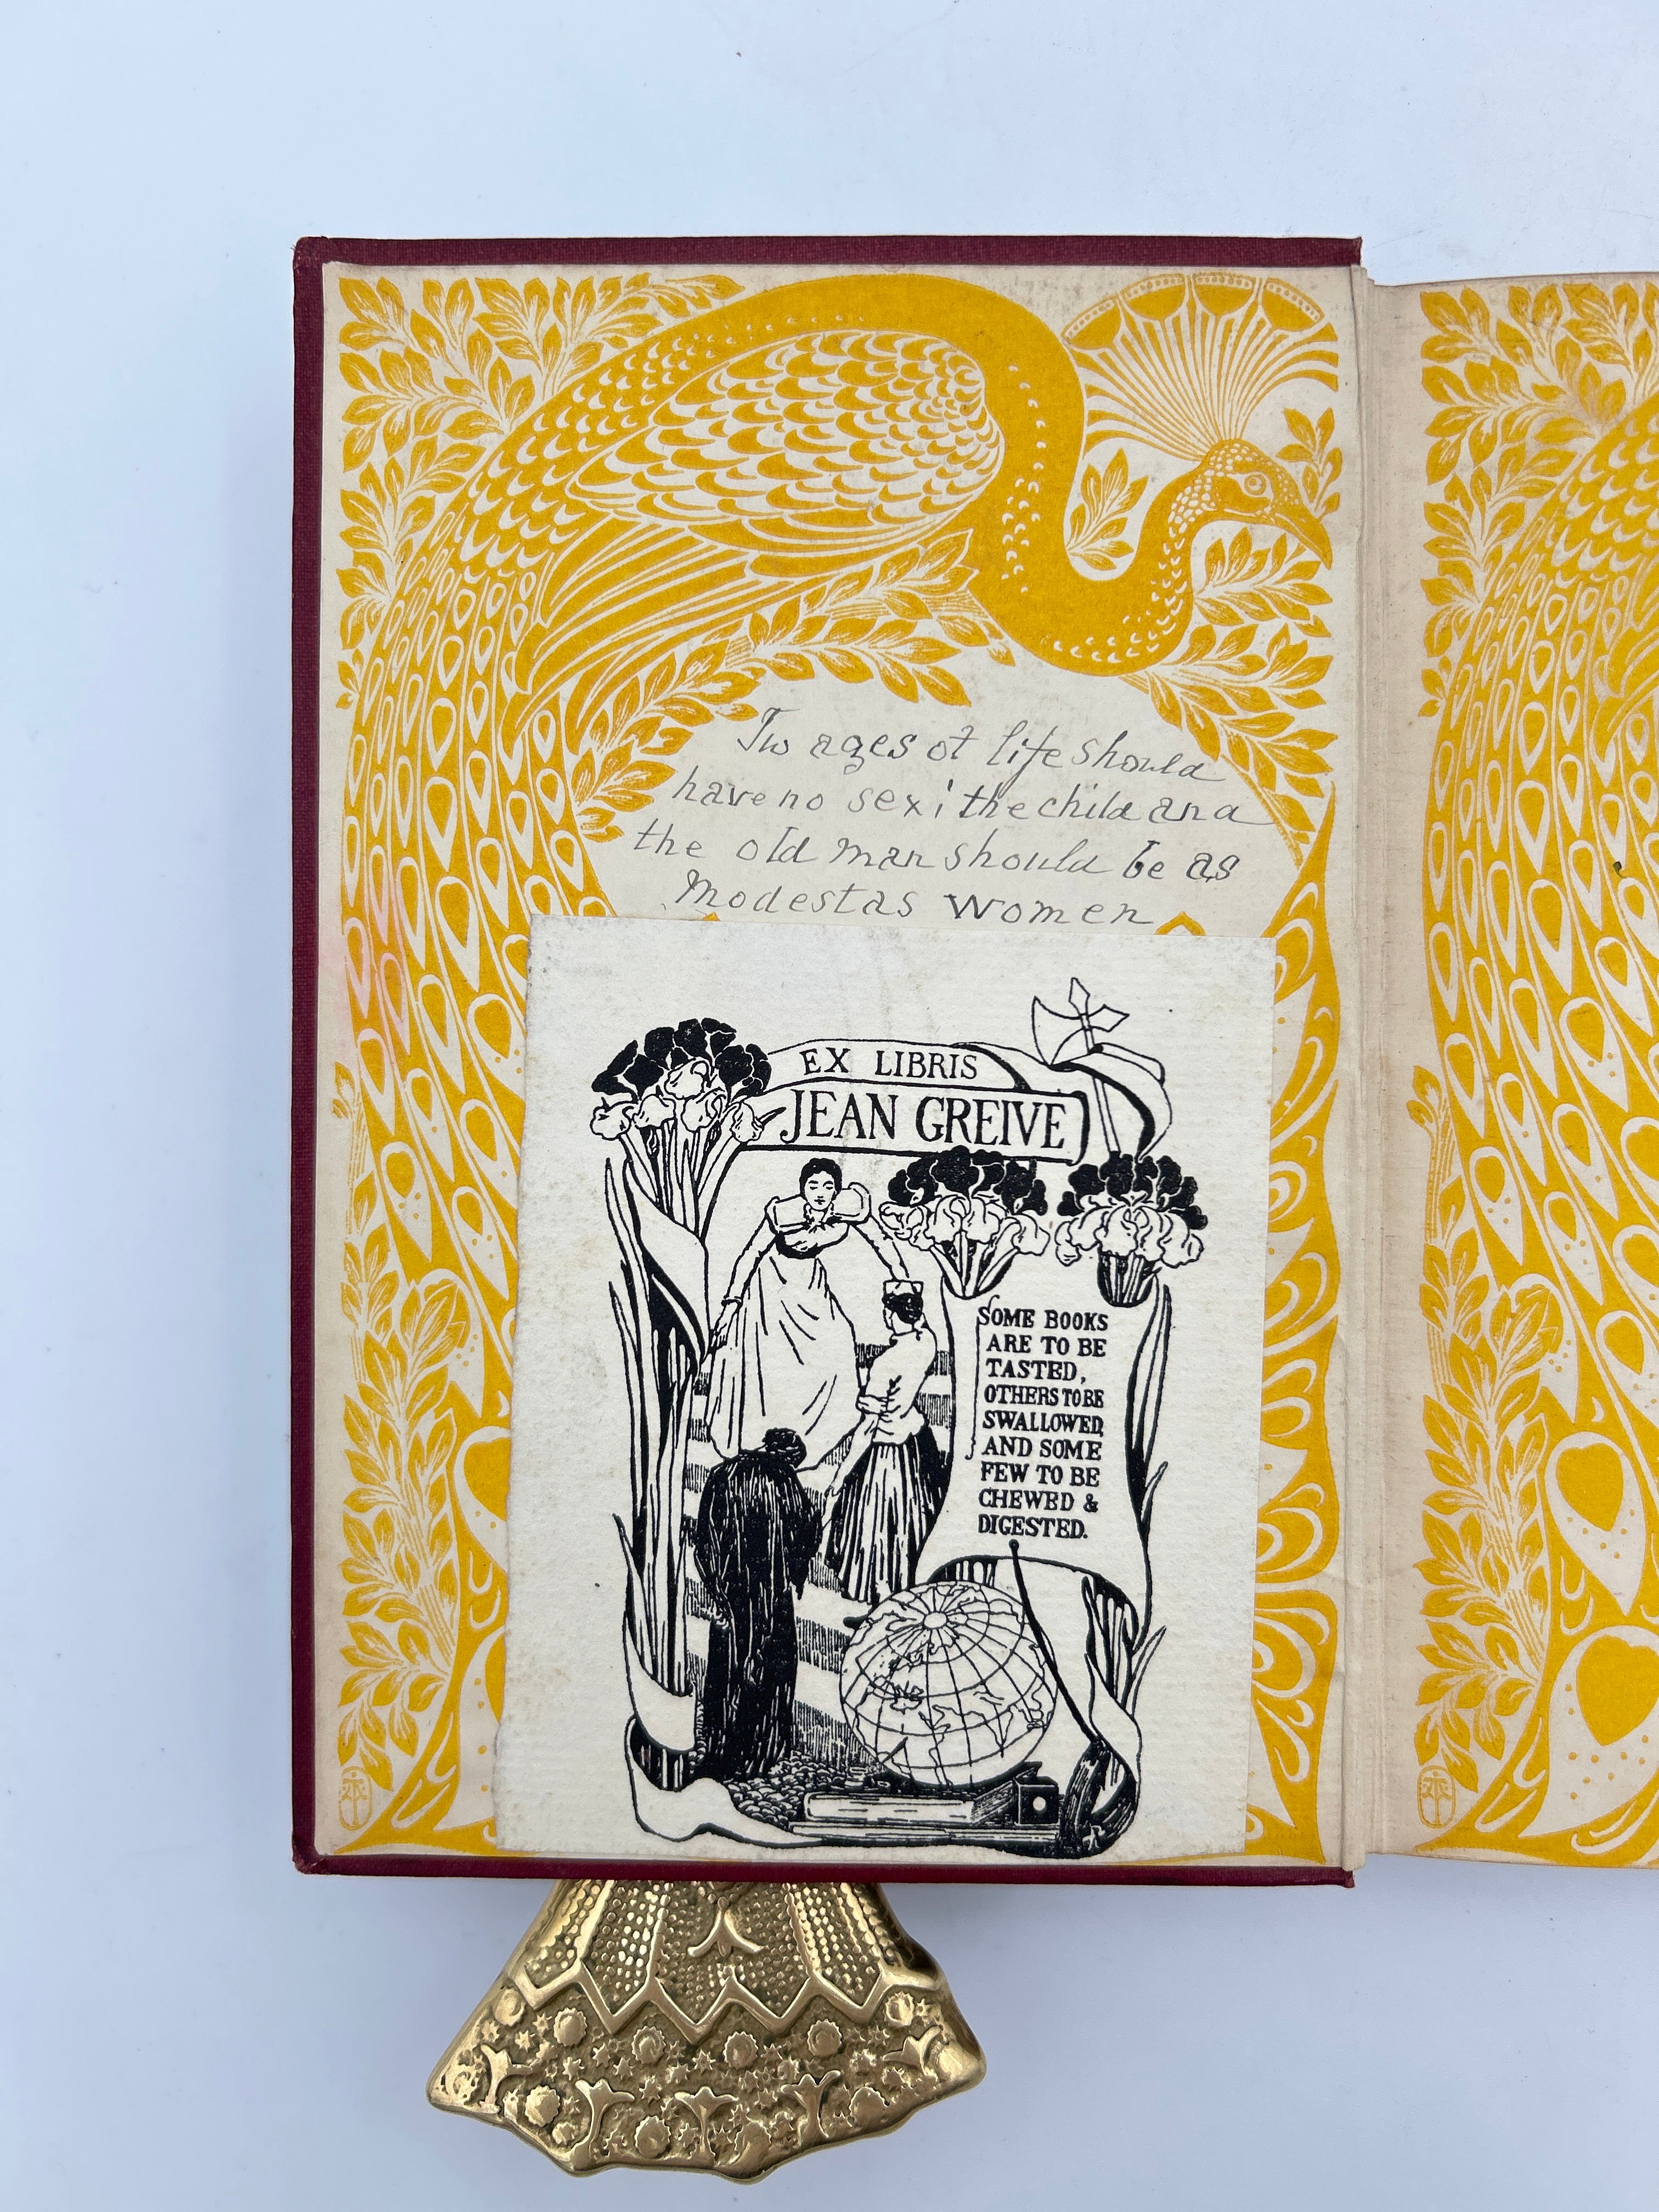 Two ages of life should
have no sex; the child and
the old man should be as
modest as women
EX LIBRIS
JEAN GREIVE
SOME BOOKS
ARE TO BE
TASTED,
OTHERS TO BE
SWALLOWED,
AND SOME
FEW TO BE
CHEWED &
DIGESTED.